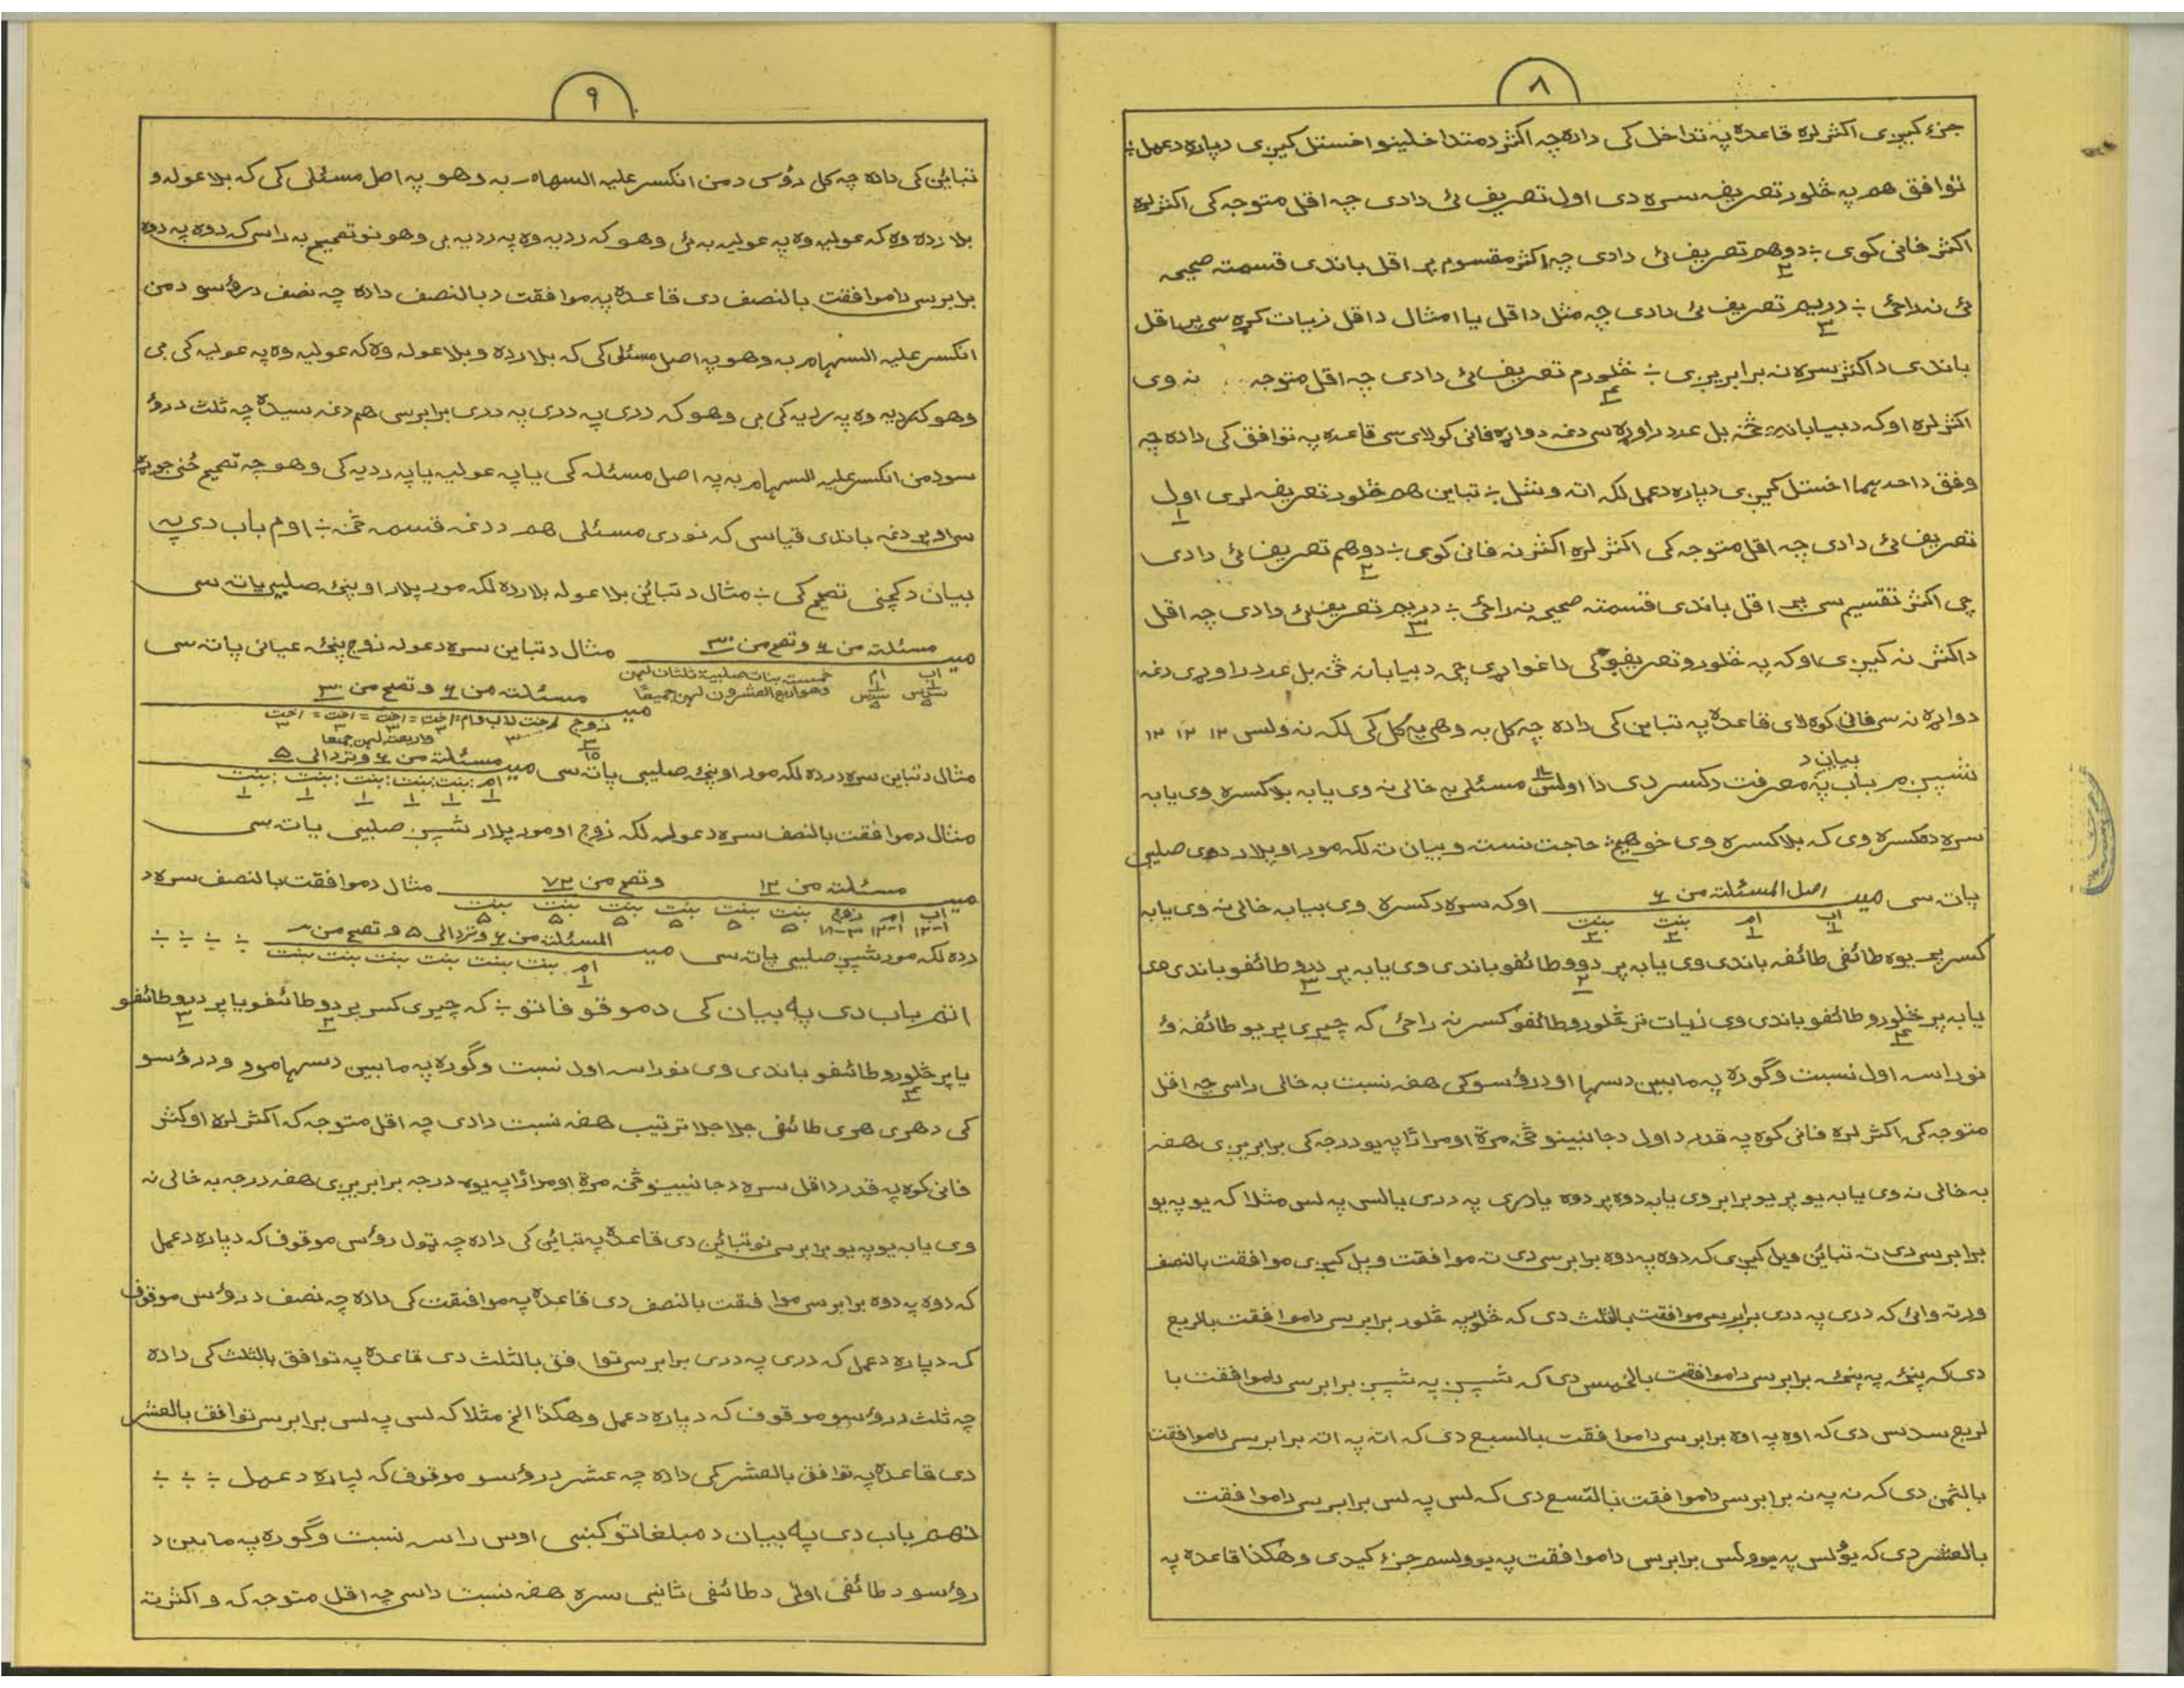 ۸
جزء کیږی اکثر لره قاعده په تداخل کی داده چه اکثر دمتداخلینو اخستل کیږی دپاره دعمل ؞
توافق هم په څلور تعریفه سره دی اول تعریف ئی دادی چه اقل متوجه کی اکثر لره
اکثر فانی کوی ؞ دوهم تعریف ئی دادی چه اکثر مقسوم پر اقل باندی قسمته صحیحه
۲
ئی نه راځی ؞ دریم تعریف ئی دادی چه مثل داقل یا امثال داقل زیات کړه سی پر اقل
۳
باندی داکثر سره نه برابریږی ؞ څلورم تعریف ئی دادی چه اقل متوجه نه وی
۴
اکثر لره اوکه دبیابانه څخه بل عدد راوړه سی دغه دواړه فانی کولای سی قاعده په توافق کی داده چه
وفق داحدهما اخستل کیږی دپاره دعمل لکه اته وشل ؞ تباین هم څلور تعریفه لری اول
۱
تعریف ئی دادی چه اقل متوجه کی اکثر لره اکثر نه فانی کوی ؞ دوهم تعریف ئی دادی
۲
چی اکثر تقسیم سی پر اقل باندی قسمته صحیح نه راځی ؞ دریم تعریف ئی دادی چه اقل
۳
داکثر نه کیږی اوکه په څلورو تعریفو کی داغواړی چی دبیابانه څخه بل عدد راوړی دغه
دواړه نه سی فانی کوه لای قاعده په تباین کی داده چه کل به وهی په کل کی لکه نه ولسی ۱۲ ۱۲ ۱۲
شپږم باب په بیان د معرفت دکسر دی دا اولس مسئلی به خالی نه وی یابه بلا کسره وی یابه
سره دکسره وی که بلاکسره وی خو هیڅ حاجت نسته وبیان ته لکه مور او پلار دوی صلیبی
پاته سی میــ اصل المسئلة من ۶ اوکه سره دکسره وی بیابه خالی نه وی یابه
اب ۱ ام ۱ بنت ۲ بنت ۲
کسر پر یوه طائفی طائفه باندی وی یابه پر دوو طائفو باندی وی یابه پر درو طائفو باندی وی
۲ ۳
یابه پر څلورو طائفو باندی وی زیات تر څلورو طائفو کسر نه راځی که چیری پر یو طائفه وُ
۴
نوراسه اول نسبت وگوره په مابین دسهاا اودرؤسو کی هغه نسبت به خالی راسی چه اقل
متوجه کی اکثر لره فانی کوه په قدر داول دجانبینو څخه مرة اومرارًا په یو درجه کی برابریږی هغه
به خالی نه وی یابه یو پر یو برابر وی یابه دوه پر دوه یادری په دری یالسی په لس مثلا که یو په یو
برابر سی دی ته تبائن ویل کیږی که دوه په دوه برابر سی دی ته موافقت ویل کیږی موافقت بالنصف
ورته وائی که دری په دری برابر سی موافقت بالثلث دی که څلور په څلور برابر سی داموافقت بالربع
دی که پنځه په پنځه برابر سی داموافقت بالخمیس دی که شپږ په شپږ برابر سی داموافقت با
لربع سدس دی که اوه په اوه برابر سی داموافقت بالسبع دی که اته په اته برابر سی داموافقت
بالثمن دی که نه په نه برابر سی داموافقت بالتسع دی که لس په لس برابر سی داموافقت
بالعشر دی که یؤلس په یوولس برابر سی داموافقت په یوولسم جزء کیدی وهکذا قاعده په
۹
تبائن کی داده چه کل رؤس دمن انکسر علیه السهام به وهو په اصل مسئلی کی که بلا عوله و
بلا رده وه که عولیه وه په عولیه به ئی وهو که ردیه وه په ردیه یی وهو نو تصحیح به راسی که دوه په دوه
برابر سی داموافقت بالنصف دی قاعده په موافقت دبالنصف داده چه نصف درؤسو دمن
انکسر علیه السهام به وهو په اصل مسئلی کی که بلا رده وبلا عوله وه که عولیه وه په عولیه کی یی
وهو که ردیه وه په ردیه کی یی وهو که دری په دری په دری برابر سی هم دغه سیده چه ثلث درؤ
سو دمن انکسر علیه السهام به په اصل مسئله کی یاپه عولیه یاپه ردیه کی وهو چه تصحیح ځنی جوړه
سی او پر دغه باندی قیاسی که نوری مسئلی هم ددغه قسمه څخه ؞ اوم باب دی په
بیان دکچنی تصحیح کی ؞ مثال دتبائن بلا عوله بلا رده لکه مور پلار او پنځه صلیبی پاته سی
میــ مسئلة من ۶ وتصح من ۳۰ مثال دتباین سره دعوله زوج پنځه عیانی پاته سی
اب ۱ سدس ۵ ام ۱ سدس ۵ خمسة بنات صلبیة ثلثان لهن وهو اربع العشرون لهن جمیعًا
میــ مسئلة من ۶ وتصح من ۳۰
زوج ۳ ۱۵ اخت لاب وام ۳ = اخت ۳ = اخت ۳ = اخت ۳ = اخت ۳ واربعة لهن جمیعا
مثال دتباین سره درده لکه مور او پنځه صلیبی پاته سی میــ مسئلة من ۶ وترد الی ۵
ام ۱ بنت ۱ بنت ۱ بنت ۱ بنت ۱ بنت ۱
مثال دموافقت بالنصف سره دعوله لکه زوج اومور پلار شپږ صلیبی پاته سی
میــ مسئلة من ۱۲ وتصح من ۷۲ مثال دموافقت بالنصف سره د
اب ۱-۱۲ ام ۱-۱۲ زوج ۳-۱۸ بنت ۵ بنت ۵ بنت ۵ بنت ۵ بنت ۵ بنت ۵
رده لکه مور شپږ صلیبی پاته سی میــ المسئلة من ۶ وترد الی ۵ وتصح من ؞ ؞ ؞ ؞
ام ۱ بنت بنت بنت بنت بنت بنت
اتم باب دی په بیان کی دموقوفاتو ؞ که چیری کسر پر دو طائفو یا پر درو طائفو
۲ ۳
یا پر څلورو طائفو باندی وی نوراسه اول نسبت وگوره په مابین دسهامو و درؤسو
۴
کی دهری هری طائفی جلا جلا ترتیب هغه نسبت دادی چه اقل متوجه که اکثر لره او کثر
فانی کوه په قدر داقل سره دجانبینو څخه مرة اومرارًا په یوه درجه برابریږی هغه درجه به خالی نه
وی یابه یو په یو برابر سی نو تبائن دی قاعده په تبائن کی داده چه ټول رؤس موقوف که دپاره دعمل
که دوه په دوه برابر سی موافقت بالنصف دی قاعده په موافقت کی داده چه نصف درؤس موقوف
که دپاره دعمل که دری په دری برابر سی توافق بالثلث دی قاعده په توافق بالثلث کی داده
چه ثلث درؤسو موقوف که دپاره دعمل وهکذا الخ مثلا که لسی په لس برابر سی توافق بالعشر
دی قاعده په توافق بالعشر کی داده چه عشر درؤسو موقوف که لپاره دعمل ؞ ؞ ؞
نهم باب دی په بیان دمبلغاتو کنبی اوس راسه نسبت وگوره په مابین د
رؤسو دطائفی اولی دطائفی ثانیی سره هغه نسبت داسی چه اقل متوجه که و اکثرته